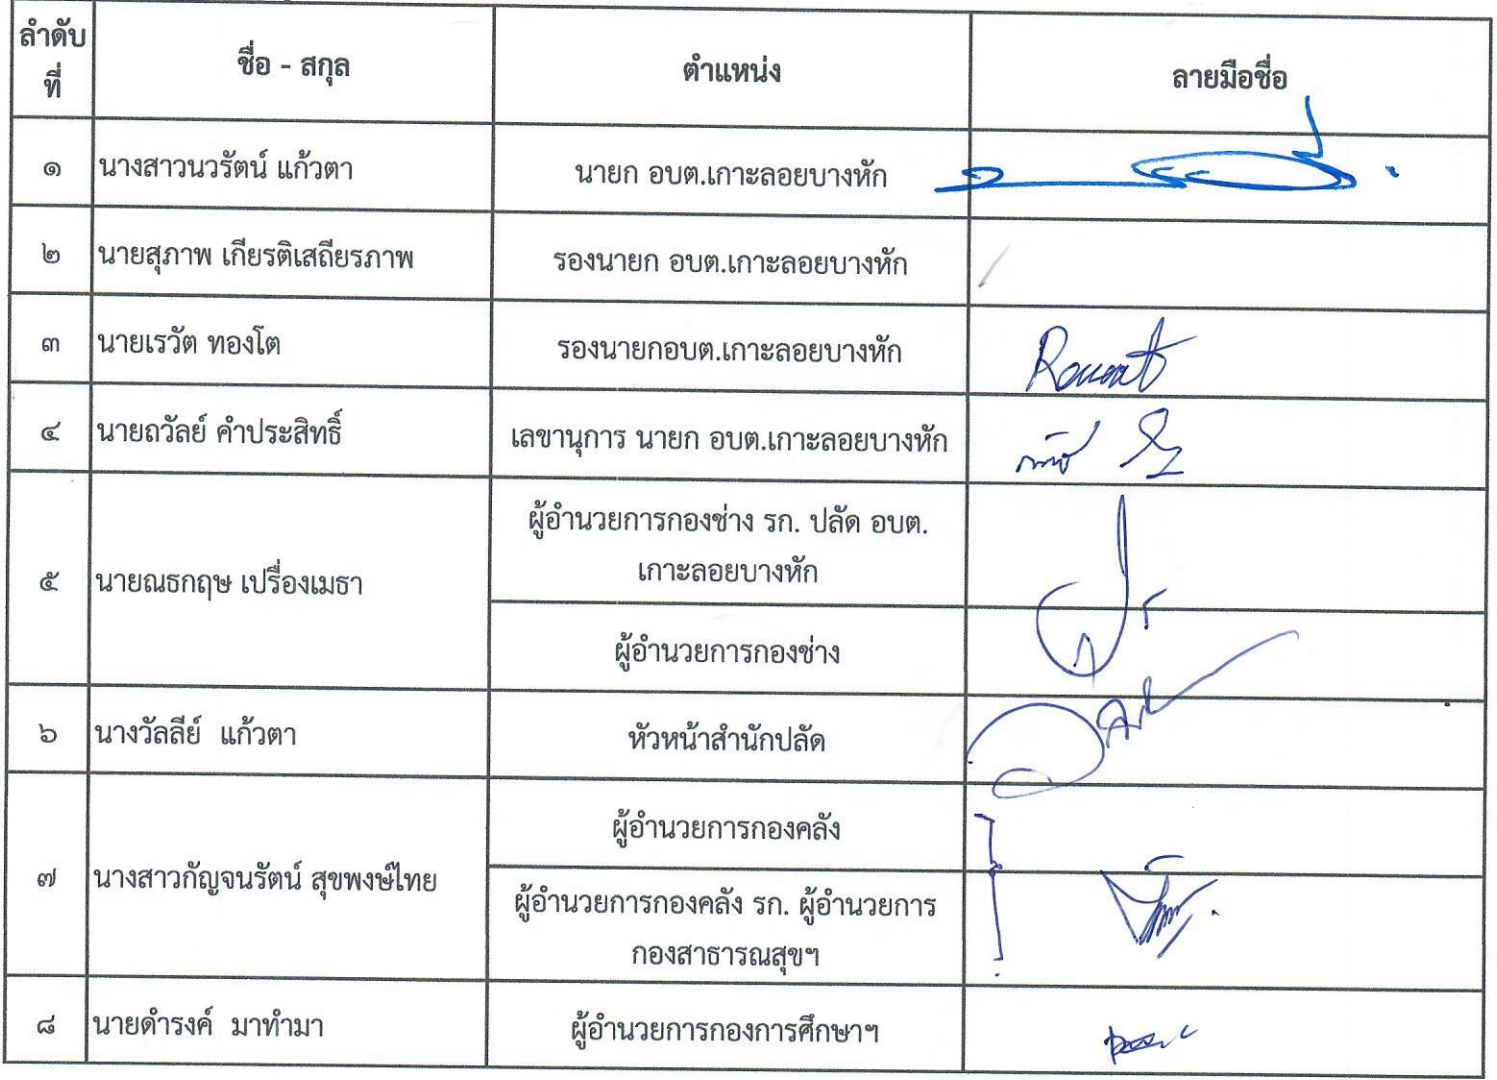 ลำดับ
ที่
ชื่อ - สกุล
ตำแหน่ง
ลายมือชื่อ
๑ นางสาวนวรัตน์ แก้วตา นายก อบต.เกาะลอยบางหัก
๒ นายสุภาพ เกียรติเสถียรภาพ รองนายก อบต.เกาะลอยบางหัก
๓ นายเรวัต ทองโต รองนายกอบต.เกาะลอยบางหัก
๔ นายถวัลย์ คำประสิทธิ์ เลขานุการ นายก อบต.เกาะลอยบางหัก
๕ นายณธกฤษ เปรื่องเมธา
ผู้อำนวยการกองช่าง รก. ปลัด อบต.
เกาะลอยบางหัก
ผู้อำนวยการกองช่าง
๖ นางวัลลีย์ แก้วตา หัวหน้าสำนักปลัด
๗ นางสาวกัญจนรัตน์ สุขพงษ์ไทย
ผู้อำนวยการกองคลัง
ผู้อำนวยการกองคลัง รก. ผู้อำนวยการ
กองสาธารณสุขฯ
๘ นายดำรงค์ มาทำมา ผู้อำนวยการกองการศึกษาฯ